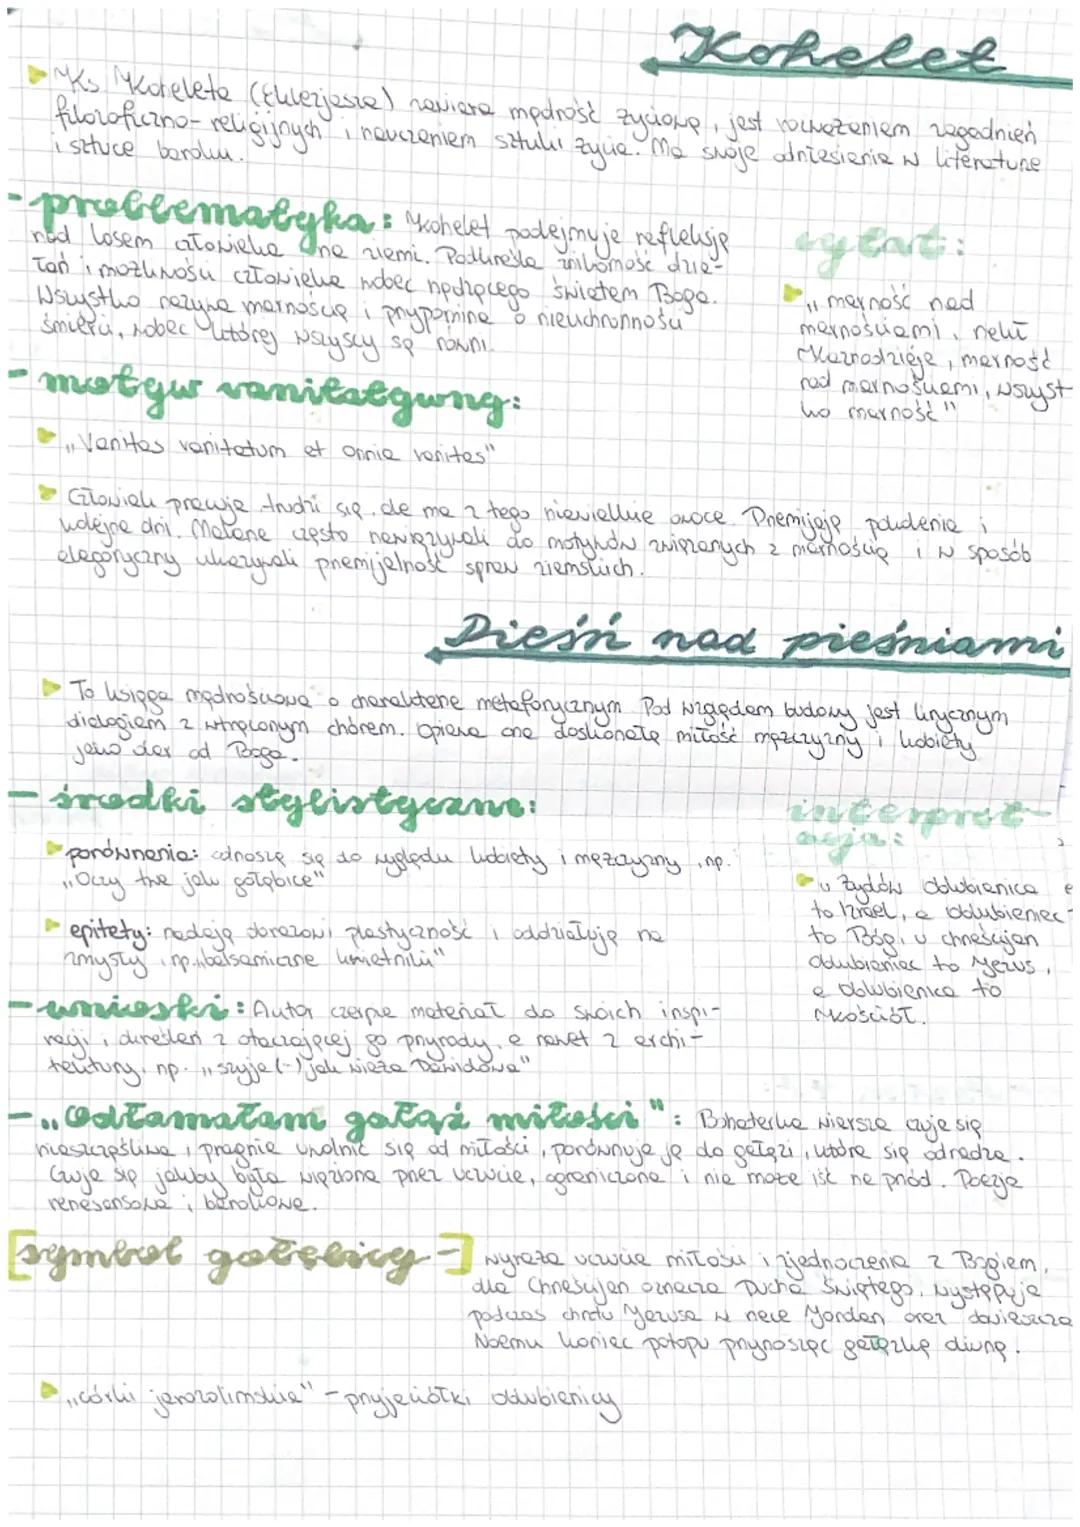 Kohelet
Ks Koheleta (Eklezjasta) zawiera mądrość życiową, jest rozważaniem zagadnień
filozoficzno-religijnych i nauczaniem sztuki życia. Ma swoje odniesienia w literaturze
i sztuce baroku.
- problematyka: Kohelet podejmuje refleksję
nad losem człowieka na ziemi. Podkreśla znikomość dzia-
łań i możliwości człowieka wobec rządzącego światem Boga.
Wszystko nazywa marnością i przypomina o nieuchronności
śmierci, wobec której wszyscy są równi.
cytat:
„marność nad
marnościami, rekł
Kaznodzieje, marność
nad marnościami, wszyst-
ko marność"
- motyw vanitatywny:
„Vanitas vanitatum et omnia vanitas"
Człowiek pracuje, trudzi się, ale ma z tego niewielkie owoce. Przemijają pokolenia i
kolejne dni. Malarze często nawiązywali do motywów związanych z marnością i w sposób
alegoryczny ukazywali przemijalność spraw ziemskich.
Pieśń nad pieśniami
To księga mądrościowa o charakterze metaforycznym. Pod względem budowy jest lirycznym
dialogiem z wtrąconym chórem. Opiewa ona doskonałą miłość mężczyzny i kobiety
jako dar od Boga.
- środki stylistyczne:
porównania: odnoszą się do wyglądu kobiety i mężczyzny, np.
„Oczy twe jak gołąbice"
epitety: nadają obrazowi plastyczność i oddziałują na
zmysły, np. „balsamiczne kwietniki"
interpret-
acja:
u Żydów oblubienica
to Izrael, a oblubieniec-
to Bóg, u chrześcijan
oblubieniec to Jezus,
a oblubienica to
Kościół.
- wnioski: Autor czerpie materiał do swoich inspi-
racji i określeń z otaczającej go przyrody, a nawet z archi-
tektury, np. „szyja (-) jak wieża Dawidowa"
- „Odłamałam gałąź miłości": Bohaterka wiersza czuje się
nieszczęśliwa i pragnie uwolnić się od miłości, porównuje ją do gałęzi, która się odradza.
Czuje się jakby była więziona przez uczucie, ograniczona i nie może iść na przód. Poezja
renesansowa i barokowa.
[symbol gołębicy -] wyraża uczucie miłości i zjednoczenia z Bogiem,
dla Chrześcijan oznacza Ducha Świętego. Występuje
podczas chrztu Jezusa w rzece Jordan oraz
Noemu koniec potopu przynosząc gałązkę oliwną.
„córki jerozolimskie" - przyjaciółki oblubienicy